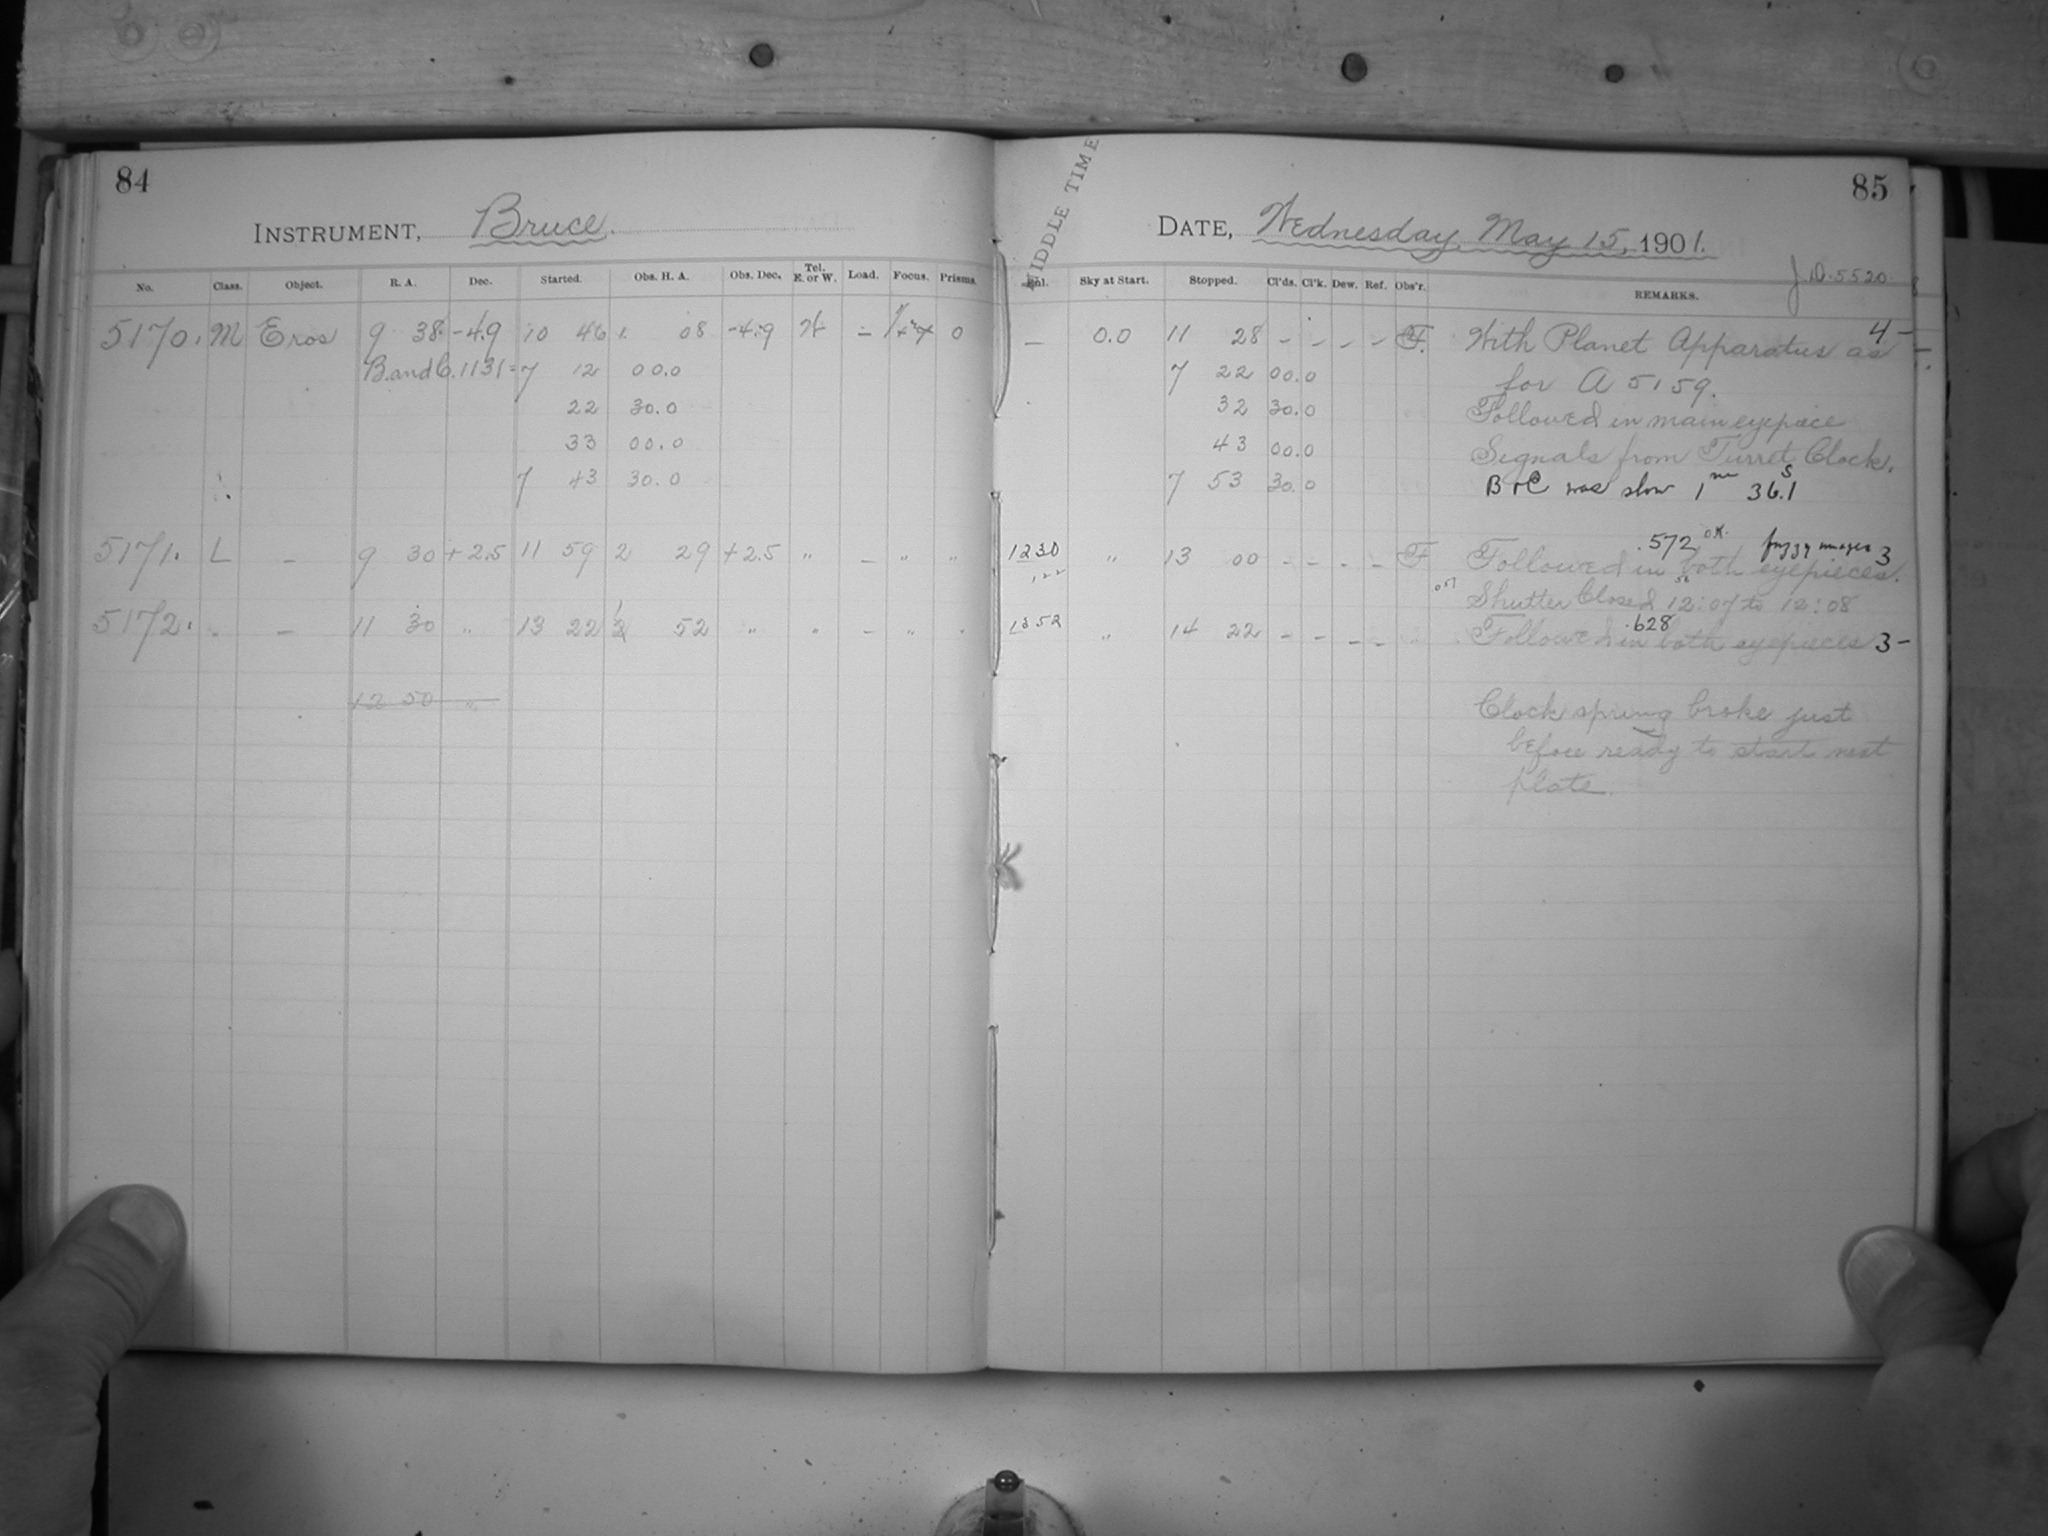 84
INSTRUMENT, Bruce.
No. Class. Object. R. A. Dec. Started. Obs. H. A. Obs. Dec. Tel. E. or W. Load. Focus. Prisms.
5170. M Eros 9 38. -4.9 10 46 1. 08 -4.9 W - 0
B. and C. 1131 = 7 12 00.0
22 30.0
33 00.0
7 43 30.0
5171. L - 9 30 +2.5 11 59 2 29 +2.5 " - " "
5172. " - 11 30 " 13 22 1 52 " " - " "
12 50 "
85
MIDDLE TIME
DATE, Wednesday, May 15, 1901.
J.D. 5520
Enl. Sky at Start. Stopped. Cl'ds. Cl'k. Dew. Ref. Obs'r. REMARKS.
- 0.0 11 28 - - - - F. With Planet Apparatus as 4-
7 22 00.0 for A 5159.
32 30.0 Followed in main eyepiece
43 00.0 Signals from Turret Clock.
7 53 30.0 B & C was slow 1m 36.1s
.572 OK. fuzzy images 3
1230 " 13 00 - - - - F Followed in both eyepieces.
Shutter Closed 12:07 to 12:08
.628
1352 " 14 22 - - - - Followed in both eyepieces 3-
Clock spring broke just
before ready to start next
plate.